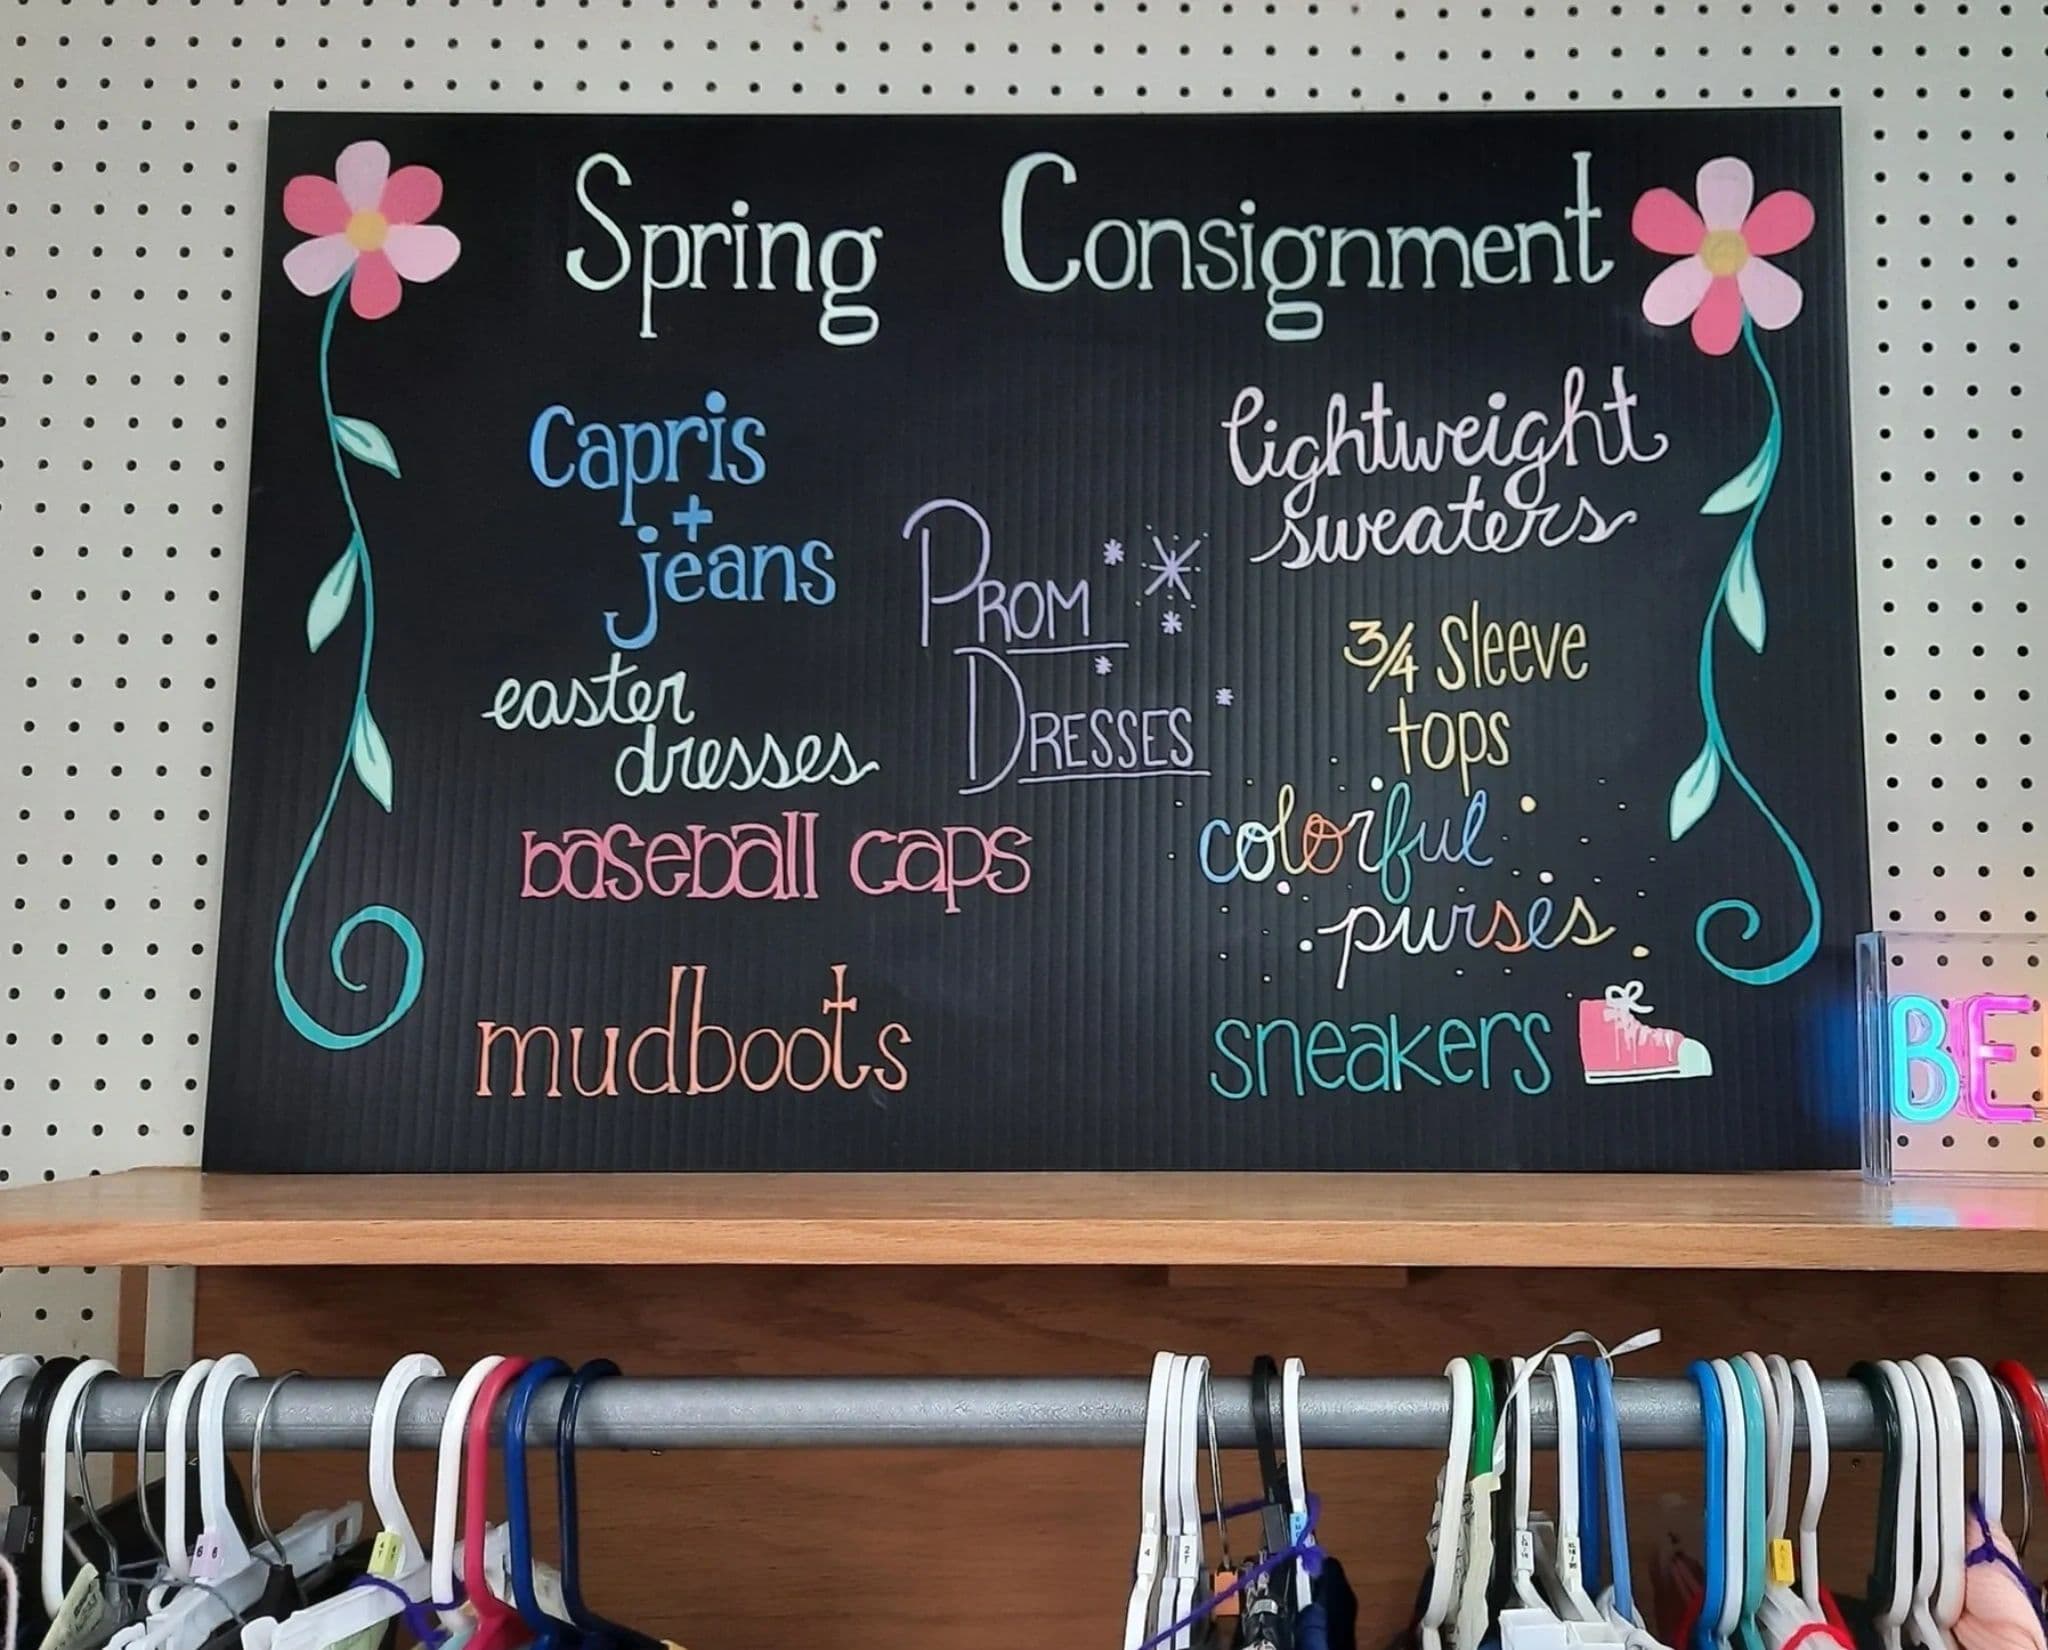 Spring Consignment
Capris
+
jeans
easter
dresses
baseball caps
mudboots
PROM
DRESSES
lightweight
sweaters
3/4 Sleeve
tops
colorful
purses
sneakers
BE
6 6
4
2T